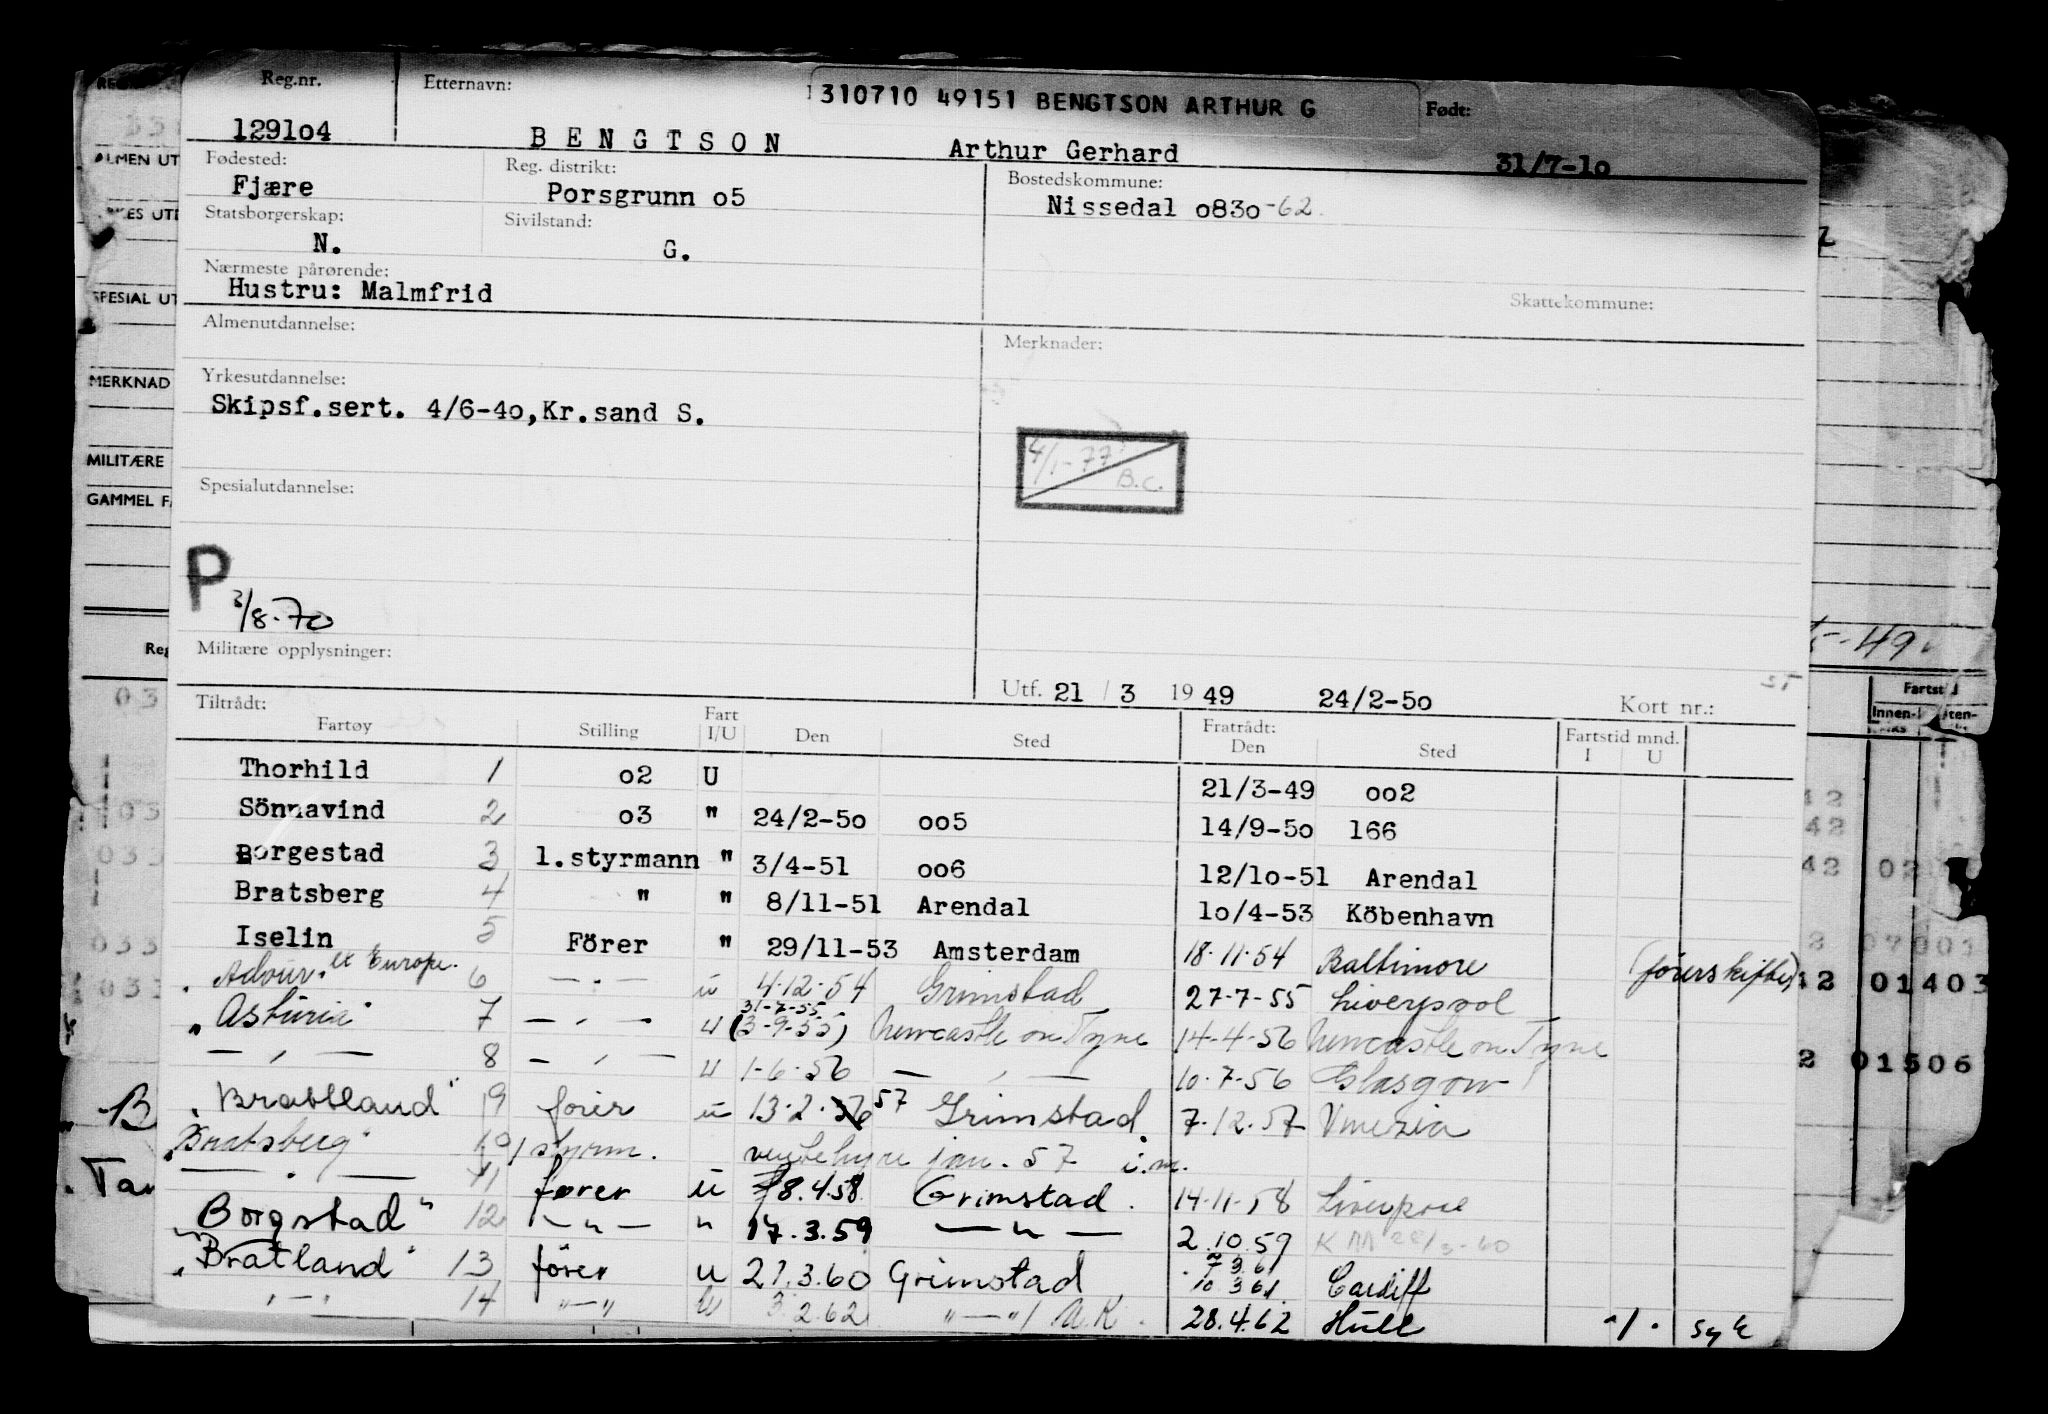 Reg.nr. Etternavn: 310710 49151 BENGTSON ARTHUR G Født:
1291o4 BENGTSON Arthur Gerhard 31/7-1o
Fødested: Reg. distrikt: Bostedskommune:
Fjære Porsgrunn o5 Nissedal o83o-62.
Statsborgerskap: Sivilstand:
N. G.
Nærmeste pårørende:
Hustru: Malmfrid Skattekommune:
Almenutdannelse: Merknader:
Yrkesutdannelse:
Skipsf.sert. 4/6-4o,Kr.sand S.
4/1-77 B.C.
Spesialutdannelse:
P
3/8-70
Militære opplysninger:
Utf. 21 / 3 19 49 24/2-5o Kort nr.:
Tiltrådt: Fart Fratrådt: Fartstid mnd.
Fartøy Stilling I/U Den Sted Den Sted I U
Thorhild 1 o2 U 21/3-49 oo2
Sönnavind 2 o3 " 24/2-5o oo5 14/9-5o 166
Borgestad 3 1.styrmann " 3/4-51 oo6 12/1o-51 Arendal
Bratsberg 4 " " 8/11-51 Arendal 1o/4-53 Köbenhavn
Iselin 5 Förer " 29/11-53 Amsterdam 18.11.54 Baltimore (förerskifte)
ex Europe. 6 — " — u 4.12.54 Grimstad 27-7-55 Liverpool
"Asturia" 7 — " — u 31-7-55 (3-9-55) Newcastle on Tyne 14-4-56 Newcastle on Tyne
— " — 8 — " — u 1-6-56 — " — 10.7-56 Glasgow
"Brattland" 9 förer u 13.2.56 57 Grimstad 7.12.57 Venezia
"Bratsberg" 10 1 styrm. ventehyre jan. 57 i.m.
— " — 11 förer u 8.4.58 Grimstad. 14-11-58 Liverpool
"Borgstad" 12 — " — " 17.3.59 — " — 2.10.59
"Bratland" 13 förer u 21.3.60 Grimstad 10 3 61 Cardiff
— " — 14 " — " u 3.2.62 " — " / A.K. 28.4.62 Hull -/- syk
ALMEN UT
SPESIAL UT
MERKNAD
MILITÆRE
GAMMEL F
Reg
-49
Fartstid
Innen-
033
01403
01506
B
Tar